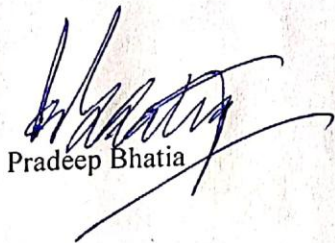 Pradeep Bhatia